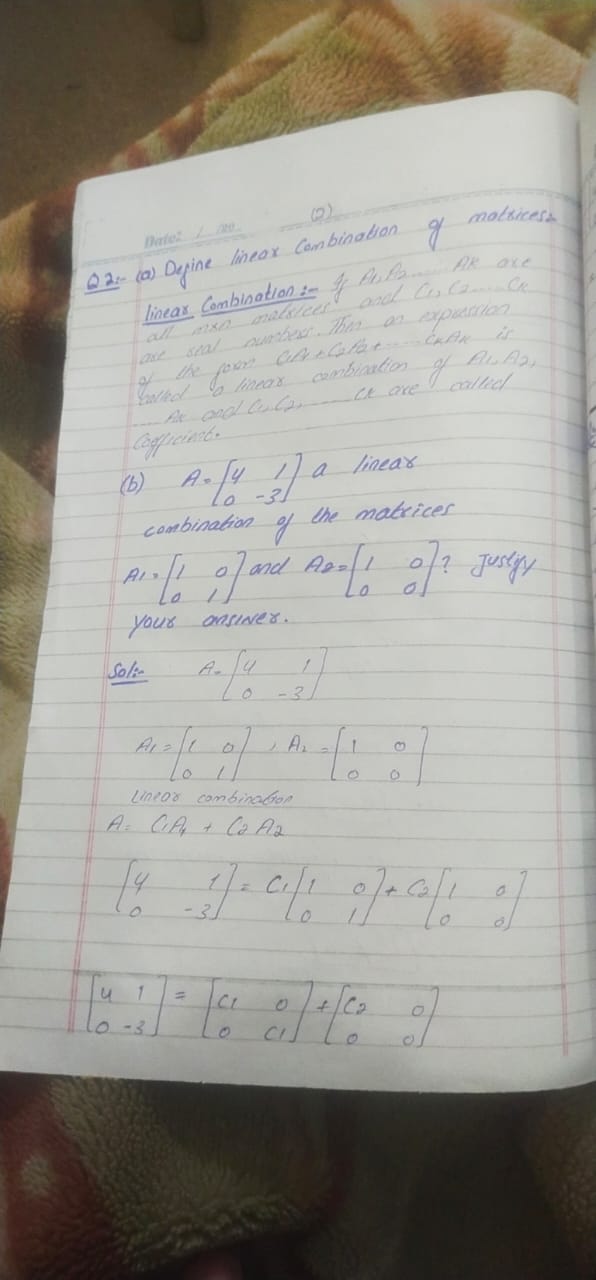 (2)
Date: / /20
Q2:- (a) Define linear Combination of matrices:-
linear Combination:- If A1, A2 ...... AK are
all mxn matrices and C1, C2 ..... CK
are real numbers. Then an expression
of the form C1A1 + C2A2 + ...... CKAK is
called a linear combination of A1, A2,
... AK and C1, C2, ...... CK are called
Cofficient.
(b) A = [4 1
0 -3] a linear
combination of the matrices
A1 = [1 0
0 1] and A2 = [1 0
0 0]? Justify
your answer.
Sol:- A = [4 1
0 -3]
A1 = [1 0
0 1], A2 = [1 0
0 0]
Linear combination
A = C1A1 + C2A2
[4 1
0 -3] = C1[1 0
0 1] + C2[1 0
0 0]
[4 1
0 -3] = [C1 0
0 C1] + [C2 0
0 0]